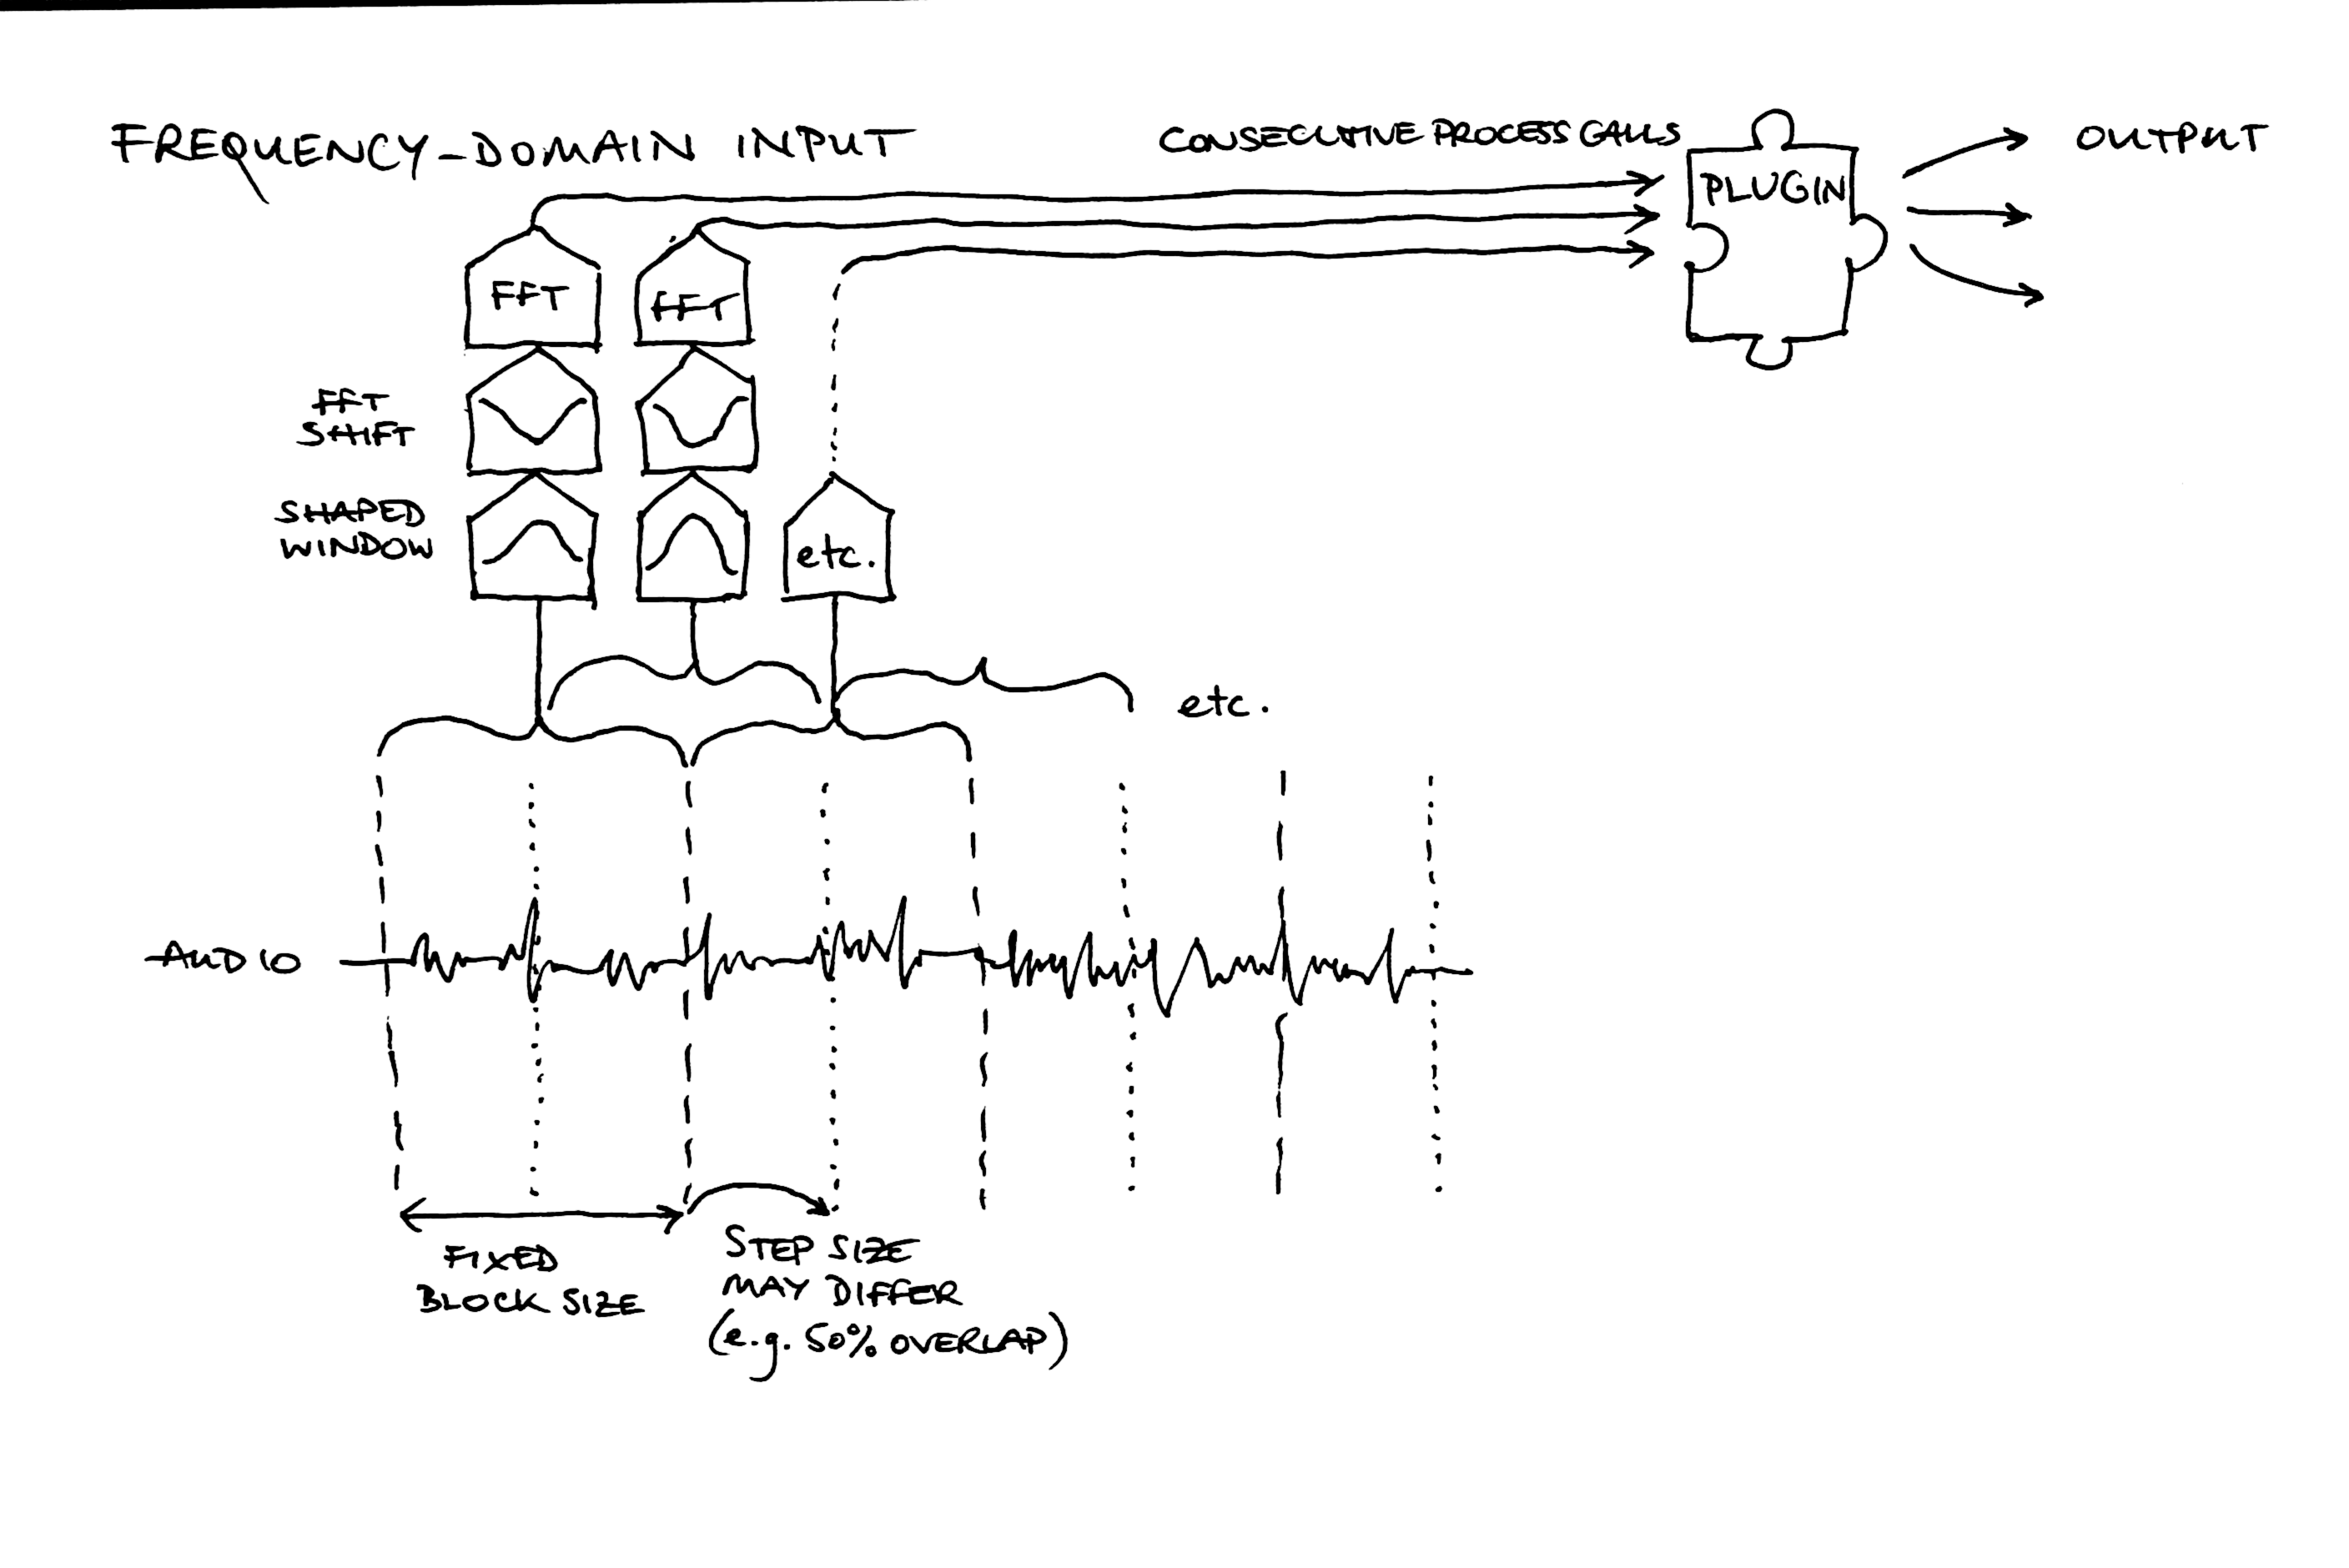 FREQUENCY-DOMAIN INPUT
CONSECUTIVE PROCESS CALLS
PLUGIN
OUTPUT
FFT
FFT
FFT
SHIFT
SHAPED
WINDOW
etc.
etc.
AUDIO
FIXED
BLOCK SIZE
STEP SIZE
MAY DIFFER
(e.g. 50% OVERLAP)